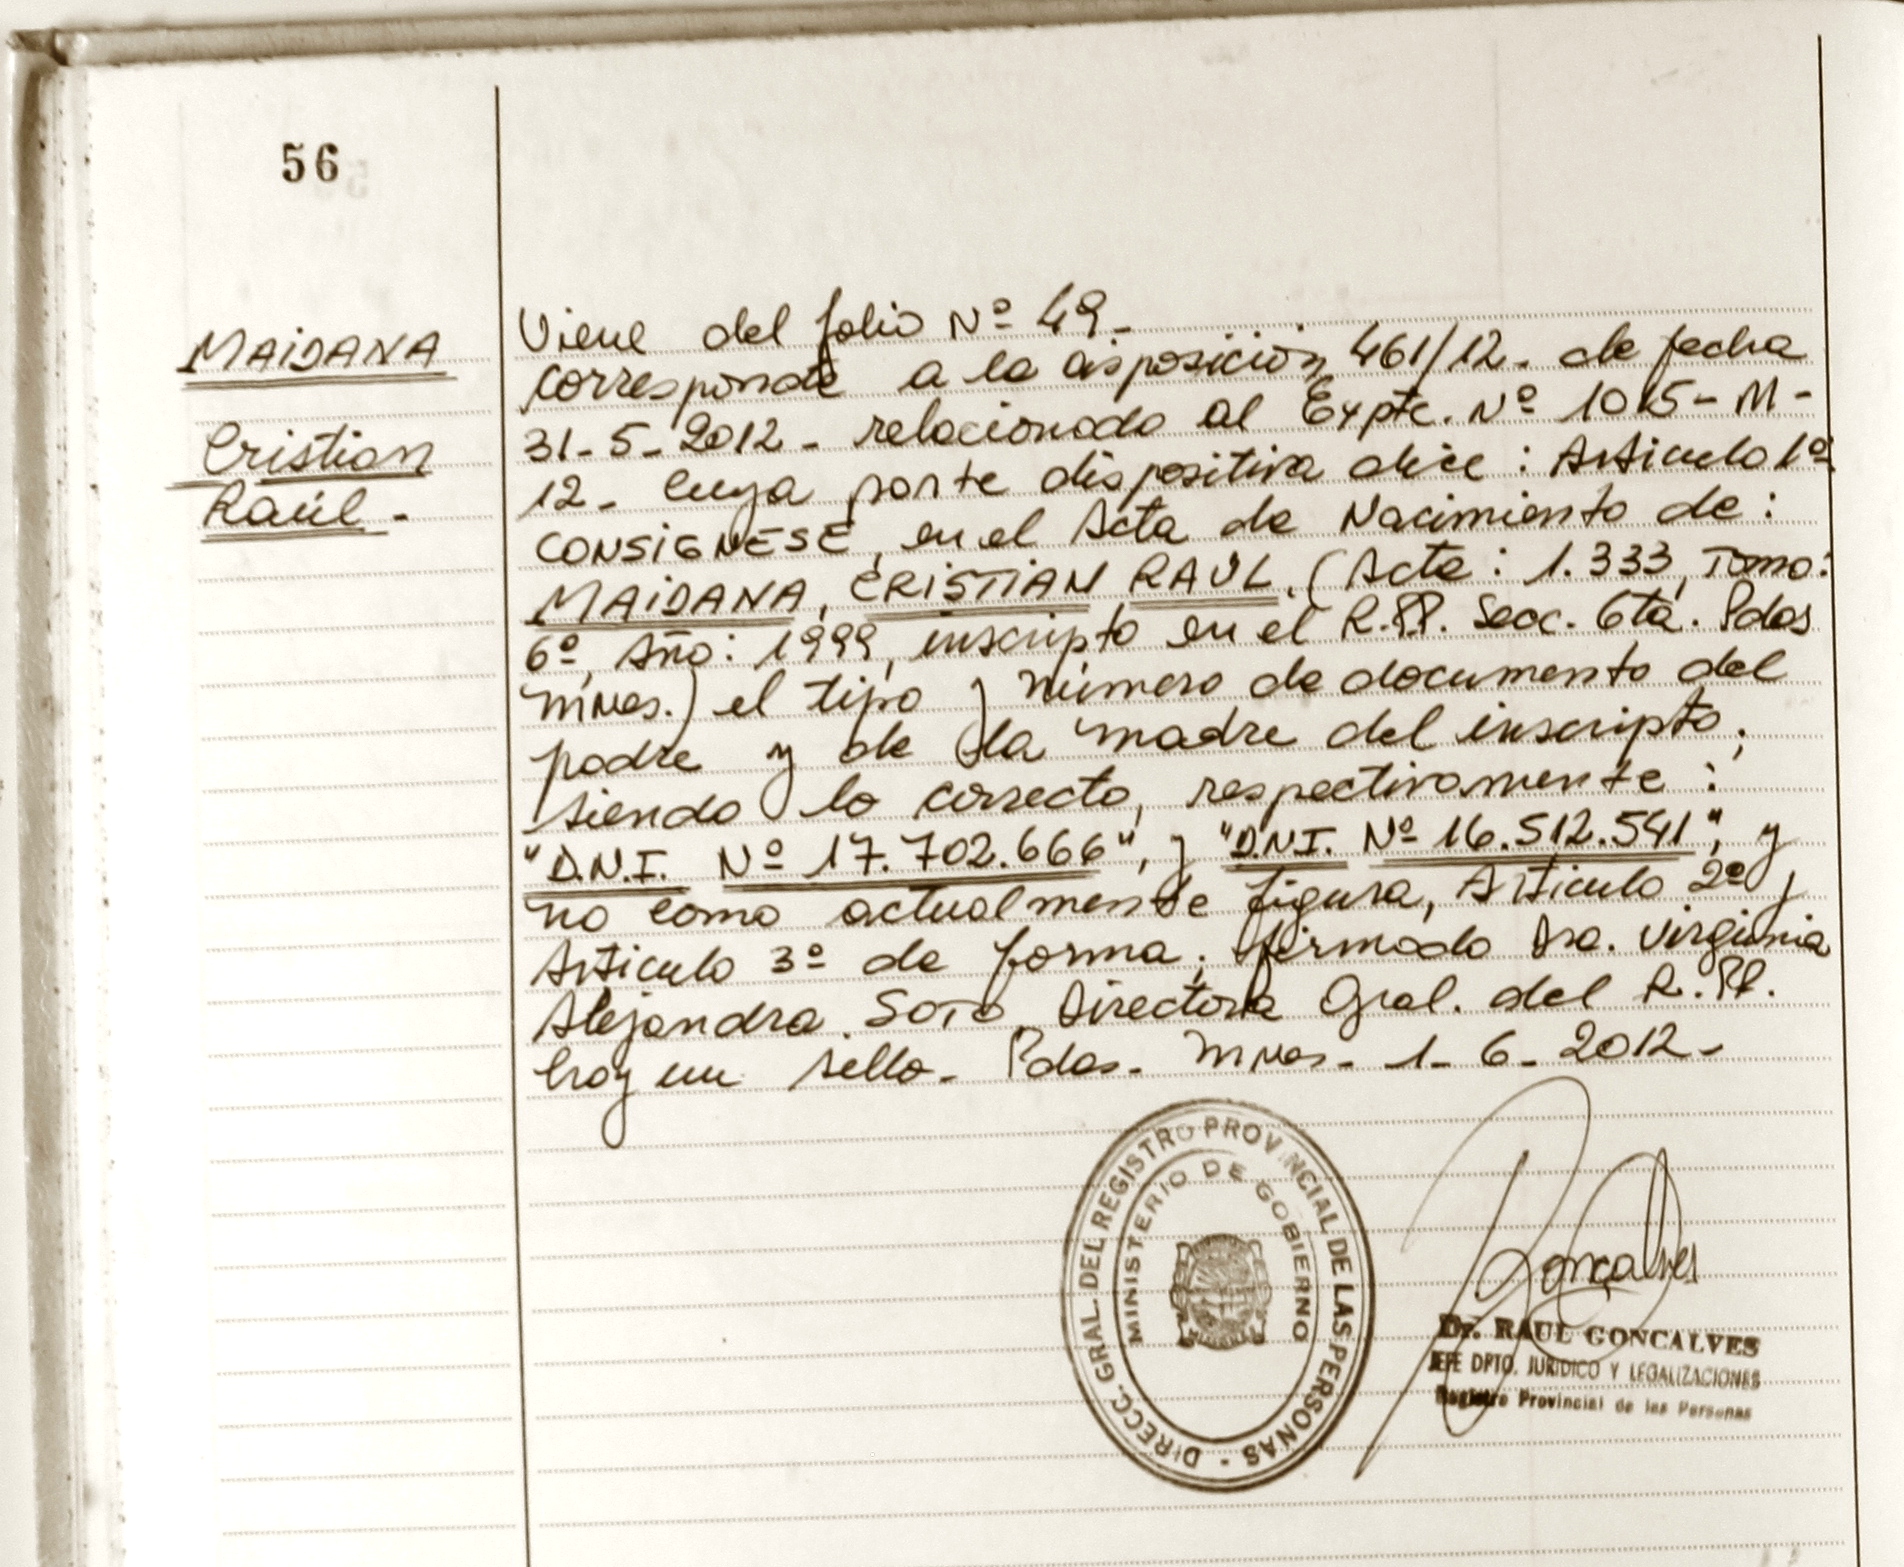 56
MAIDANA
Cristian
Raúl -
Viene del folio Nº 49-
Corresponde a la disposición 461/12. de fecha
31-5-2012- relacionado al Expte. Nº 1015-M-
12- cuya parte dispositiva dice: Articulo 1º
CONSIGNESE, en el Acta de Nacimiento de:
MAIDANA, CRISTIAN RAÚL, (Acta: 1.333, Tomo:
6º, Año: 1999, inscripto en el R.PP. Secc. 6ta. Pdas
mnes.) el tipo y número de documento del
padre y de la madre del inscripto,
siendo lo correcto, respectivamente:
"D.N.I. Nº 17.702.666", y "D.N.I. Nº 16.512.541", y
no como actualmente figura, Articulo 2º y
Articulo 3º de forma. firmado Dra. Virginia
Alejandra SOTO, Directora Gral. del R.PP.
hay un sello- Pdas- mnes- 1-6-2012-
DIRECC. GRAL. DEL REGISTRO PROVINCIAL DE LAS PERSONAS -
MINISTERIO DE GOBIERNO
Gonçalves
Dr. RAUL GONCALVES
JEFE DPTO. JURIDICO Y LEGALIZACIONES
Registro Provincial de las Personas